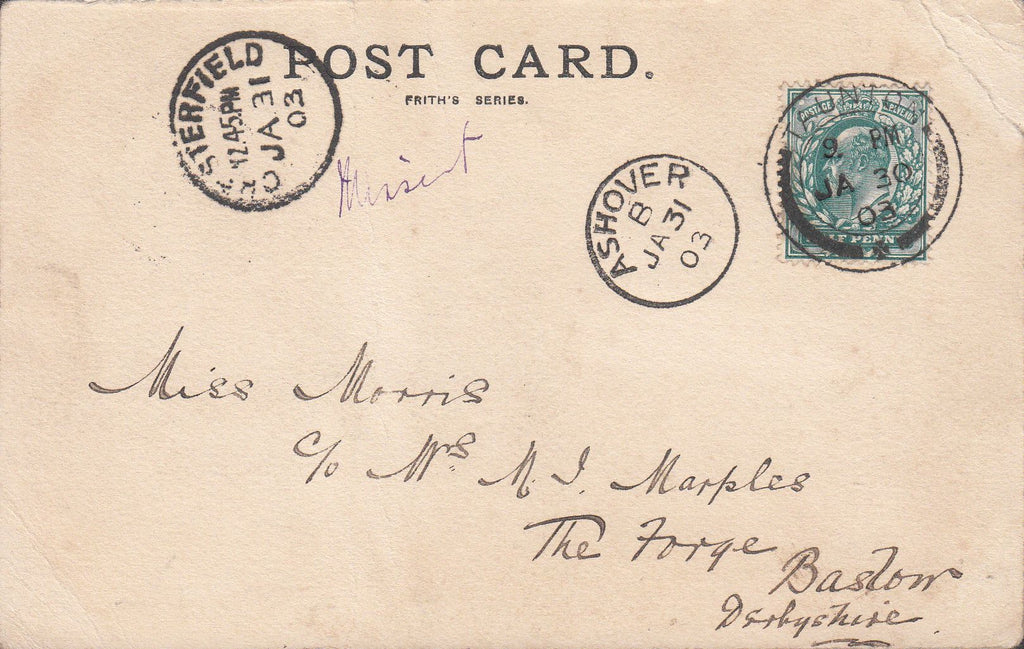 POST CARD.
FRITH'S SERIES.
CHESTERFIELD
12.45PM
JA 31
03
Missent
ASHOVER
B
JA 31
03
POSTAGE REVENUE
9 PM
JA 30
03
PENN
Miss Morris
c/o Mrs M. J. Marples
The Forge
Baslow
Derbyshire